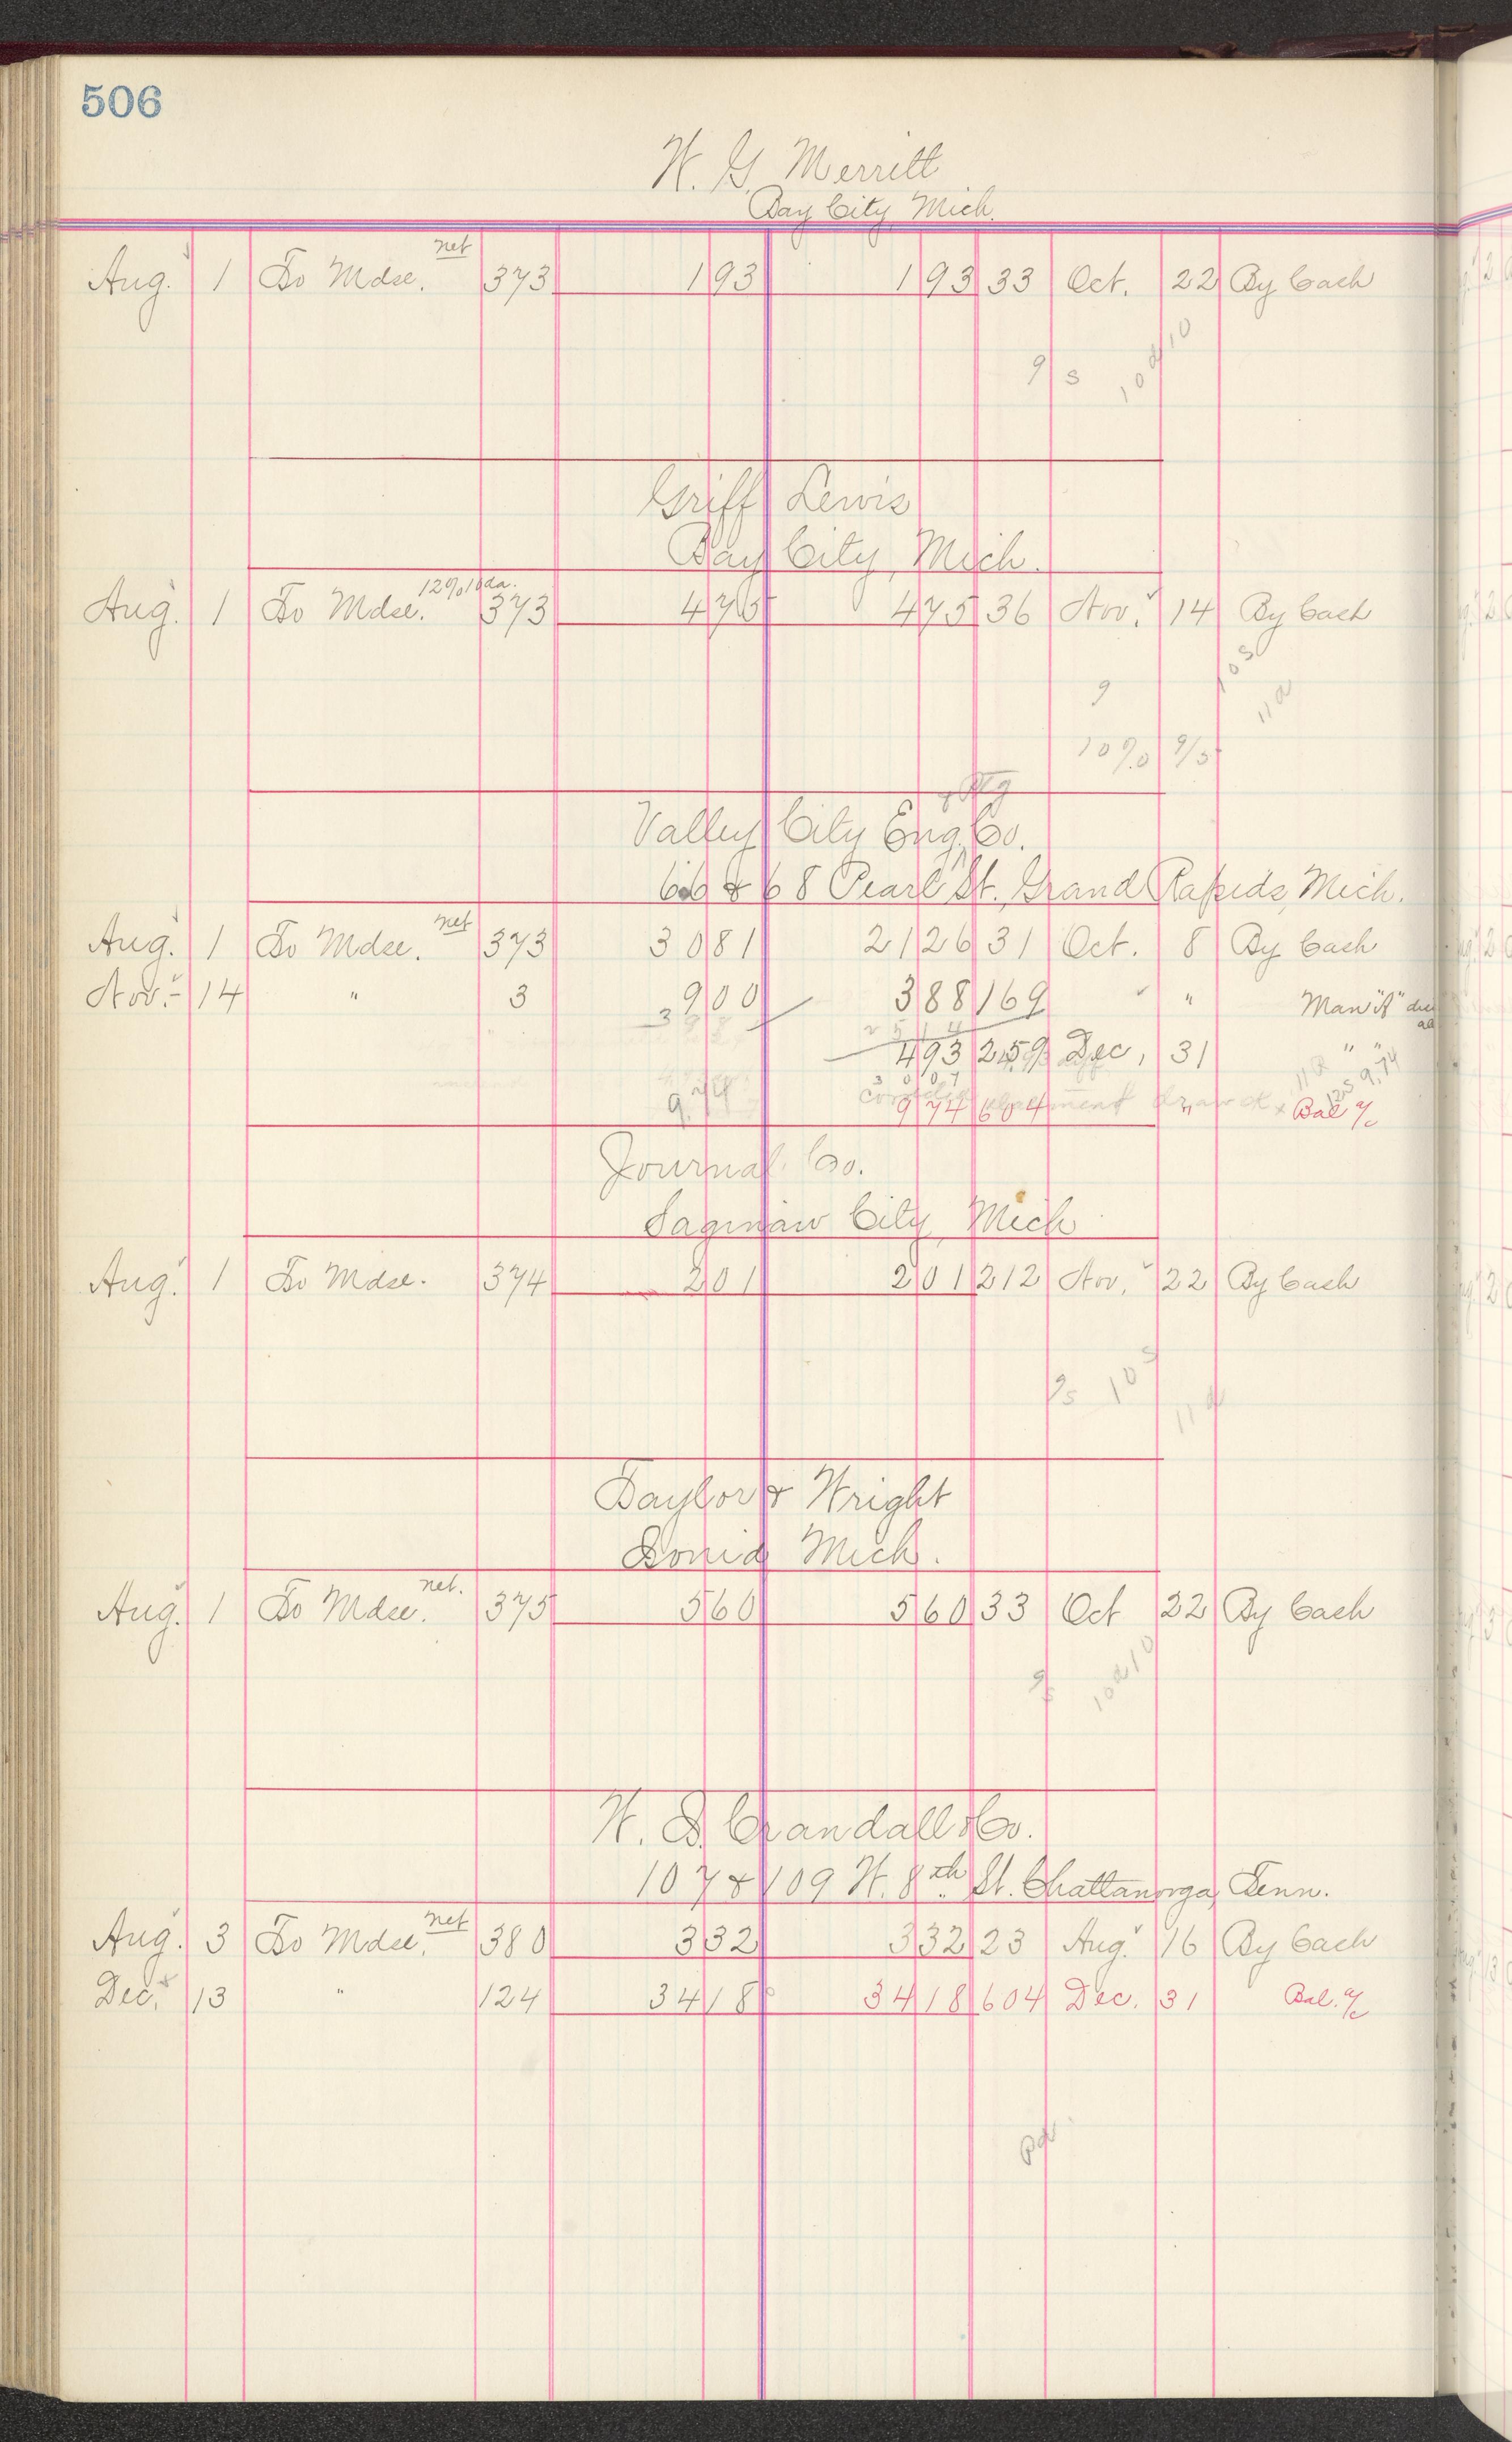 506
W. G. Merritt
Bay City, Mich.
Aug. 1 To Mdse. net 373 1 93 1 93 33 Oct. 22 By Cash
9/5 10 d 10
Griff Lewis
Bay City, Mich.
Aug. 1 To Mdse. 12% 10 da. 373 4 75 4 75 36 Nov. 14 By Cash
10 5
9 11 d
10% 9/5
& Ptg
Valley City Eng. Co.
66 & 68 Pearl St. Grand Rapids, Mich.
Aug. 1 To Mdse. net 373 30 81 21 26 31 Oct. 8 By Cash
Nov. 14 " 3 9 00 3 88 169 " Man'f'
25 14
4 93 259 Dec. 31 " "
30 07
9.74 9 74 604 " Bal a/c
Journal Co.
Saginaw City, Mich
Aug. 1 To Mdse. 374 2 01 2 01 212 Nov. 22 By Cash
9/5 10 5 11 d
Taylor & Wright
Ionia Mich.
Aug. 1 To Mdse. net. 375 5 60 5 60 33 Oct 22 By Cash
9/5 10 d 10
W. D. Crandall & Co.
107 & 109 W. 8th St. Chattanooga, Tenn.
Aug. 3 To Mdse. net 380 3 32 3 32 23 Aug. 16 By Cash
Dec. 13 " 124 34 18 34 18 604 Dec. 31 Bal. a/c
Pd